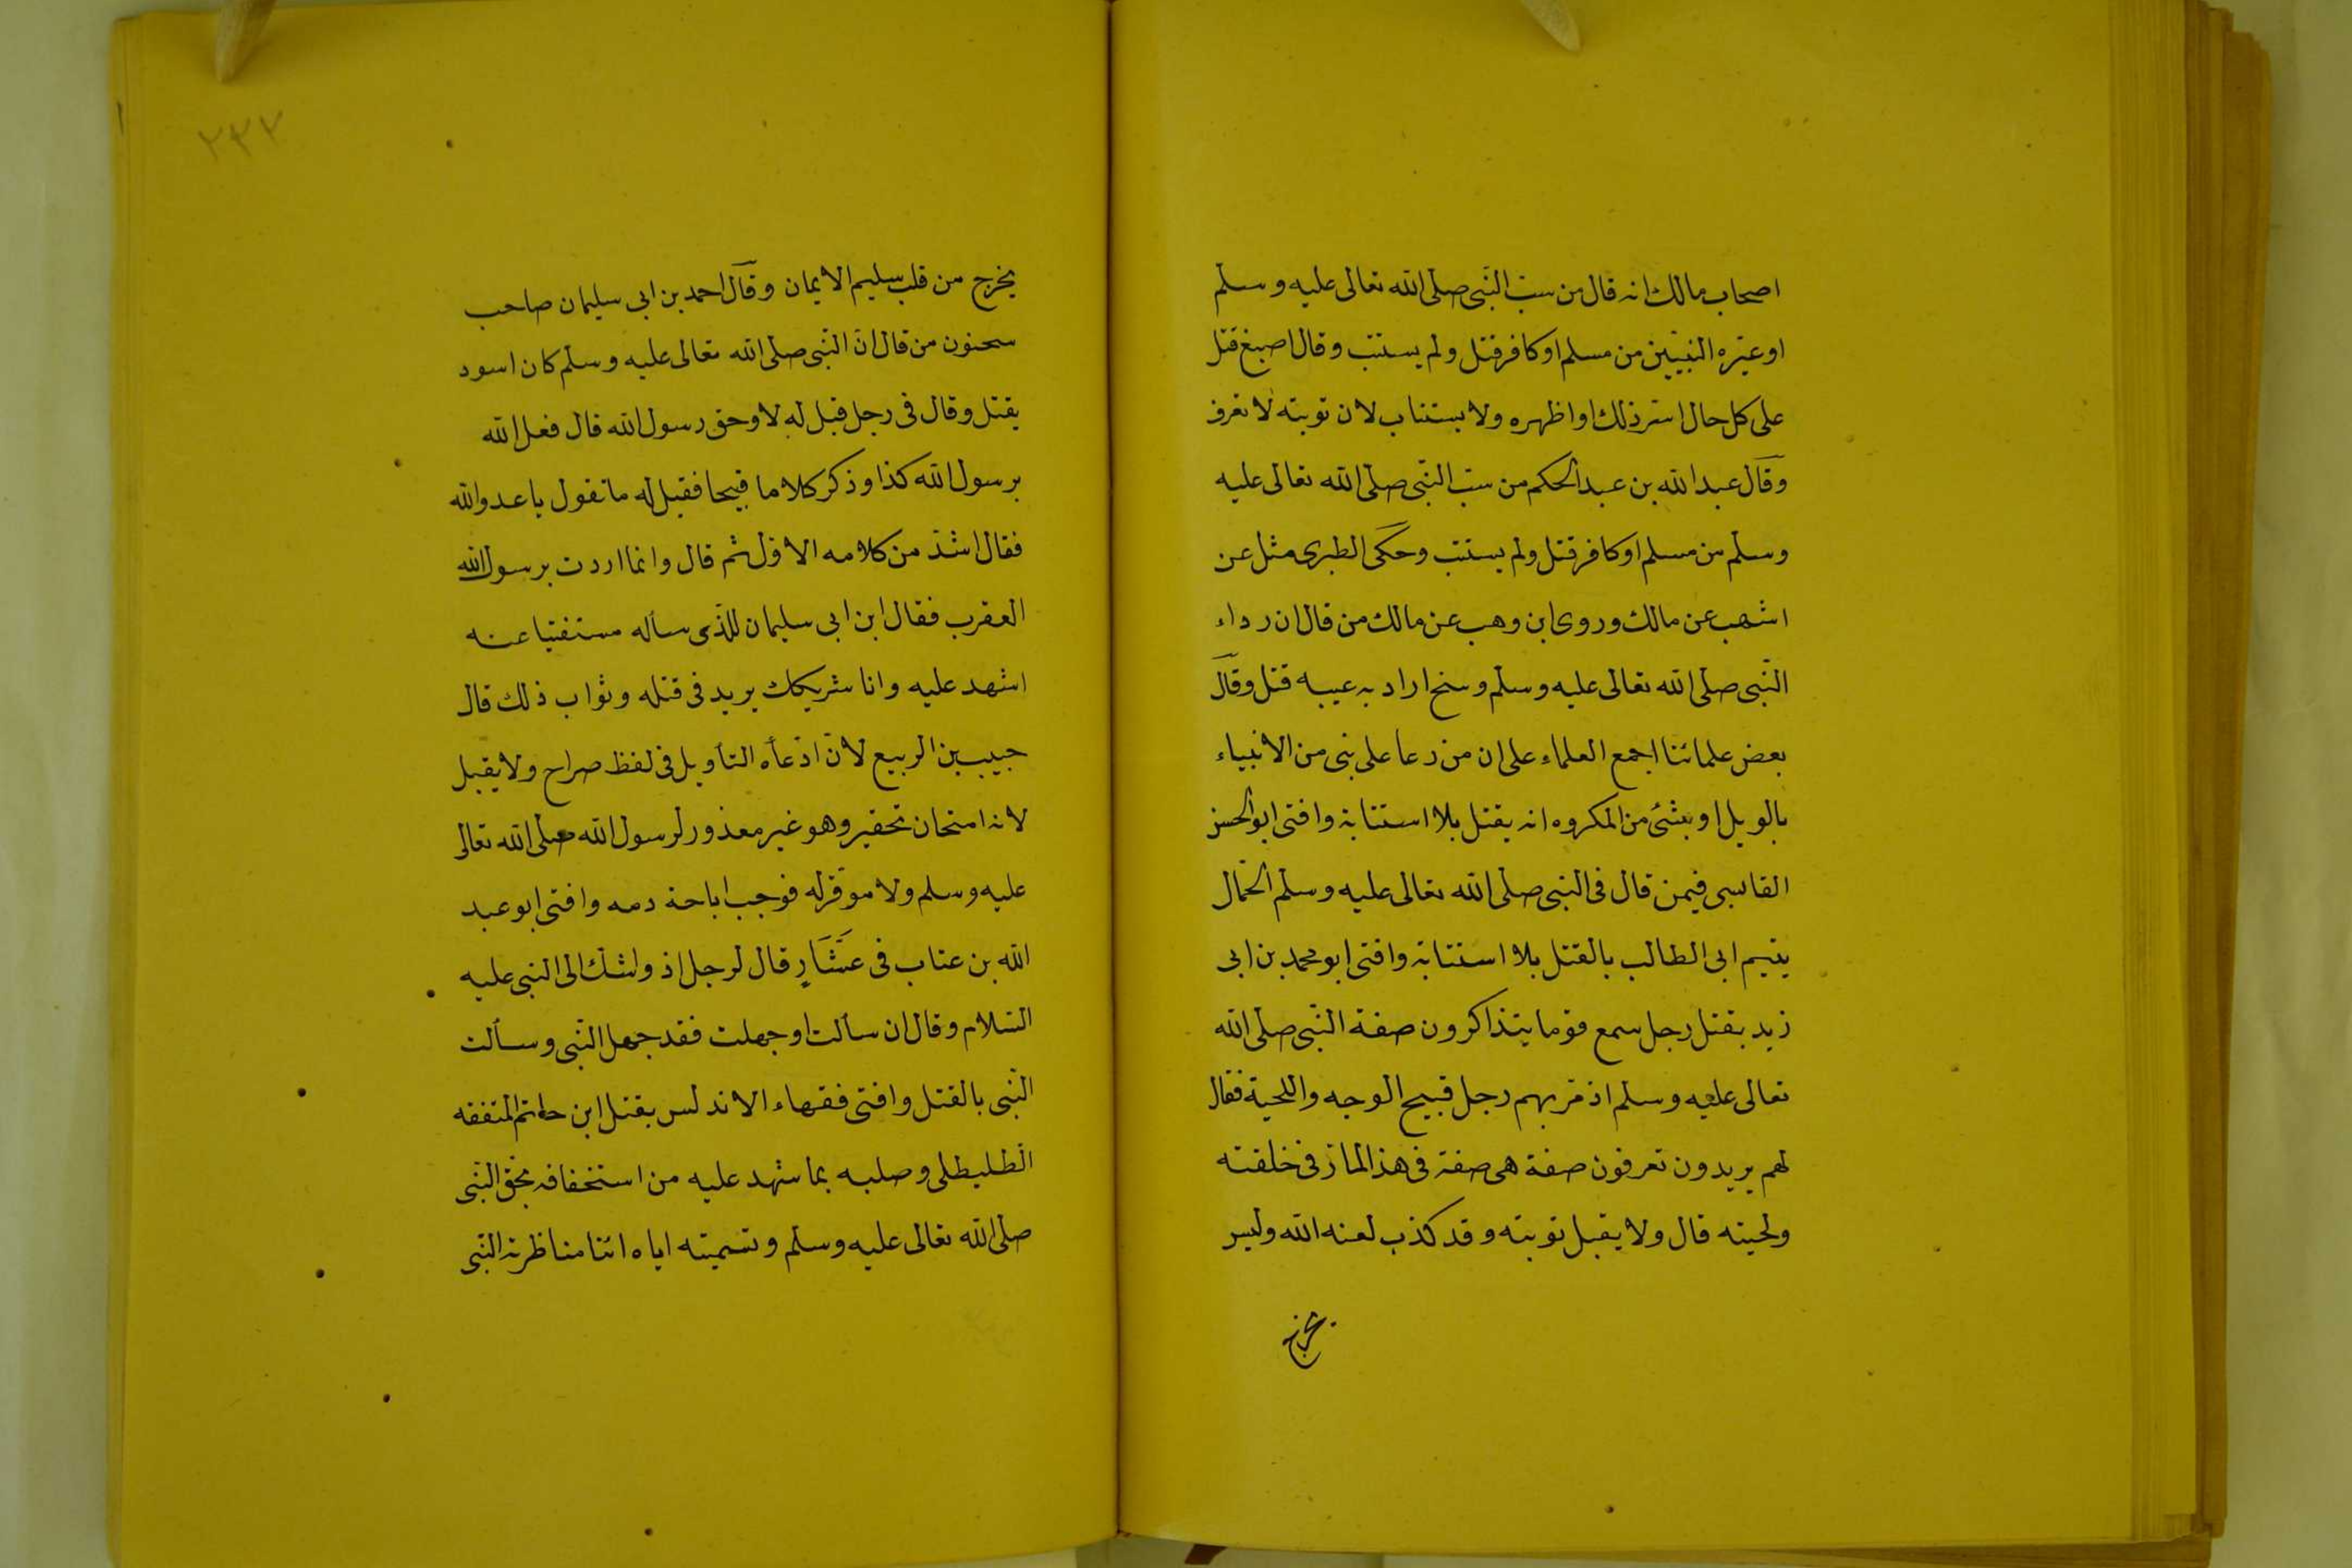 اصحاب مالك انه قال من سبّ النّبى صلى الله تعالى عليه وسلّم
او غيره النبيّين من مسلم او كافر قتل ولم يستتب وقال اصبغ قتل
على كل حال اسرّ ذلك او اظهره ولا يستتاب لان توبته لا تعرف
وقال عبد الله بن عبد الحكم من سبّ النّبى صلى الله تعالى عليه
وسلّم من مسلم او كافر قتل ولم يستتب وحكى الطبرى مثل عن
اشهب عن مالك وروى ابن وهب عن مالك من قال ان رداء
النّبى صلى الله تعالى عليه وسلّم وسخ اراد به عيبه قتل وقال
بعض علمائنا اجمع العلماء على ان من دعا على نبى من الانبياء
بالويل او بشئ من المكروه انه يقتل بلا استتابة وافتى ابو الحسن
القابسى فيمن قال فى النبى صلى الله تعالى عليه وسلّم الحمّال
يتيم ابى الطالب بالقتل بلا استتابة وافتى ابو محمد بن ابى
زيد بقتل رجل سمع قوما يتذاكرون صفة النّبى صلى الله
تعالى عليه وسلم اذ مرّ بهم رجل قبيح الوجه واللحية فقال
لهم يريدون تعرفون صفة هى صفة فى هذا المارّ فى خلقته
ولحيته قال ولا يقبل توبته وقد كذب لعنه الله وليس
يخرج
٢٣٢
يخرج من قلب سليم الايمان وقال احمد بن ابى سليمان صاحب
سحنون من قال انّ النّبى صلى الله تعالى عليه وسلّم كان اسود
يقتل وقال فى رجل قيل له لا وحق رسول الله قال فعل الله
برسول الله كذا وذكر كلاما قبيحا فقيل له ما تقول يا عدو الله
فقال اشدّ من كلامه الاوّل ثم قال وانما اردت برسول الله
العقرب فقال ابن ابى سليمان للذى سأله مستفتيا عنه
اشهد عليه وانا شريكك يريد فى قتله وثواب ذلك قال
حبيب بن الربيع لانّ ادّعاه التأويل فى لفظ صراح ولا يقبل
لانه امتحان تحقير وهو غير معذور لرسول الله صلى الله تعالى
عليه وسلم ولا موقّر له فوجب اباحة دمه وافتى ابو عبد
الله بن عتاب فى عشّار قال لرجل اذ واشك الى النبى عليه
السّلام وقال ان سألت او جهلت فقد جهل النّبى وسألت
النّبى بالقتل وافتى فقهاء الاندلس بقتل ابن حاتم المتفقه
الطليطلى وصلبه بما شهد عليه من استخفافه بحق النّبى
صلى الله تعالى عليه وسلّم وتسميته اياه اثنا مناظرته النّبى